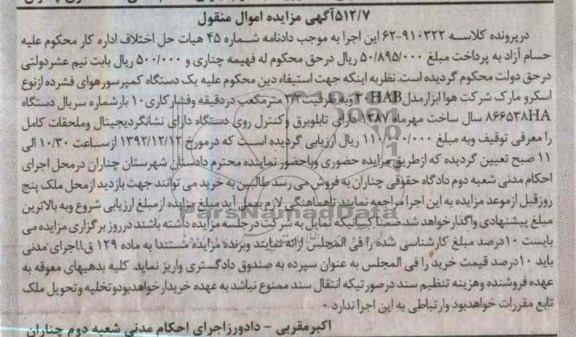 ۵۱۲/۷آگهی مزایده اموال منقول
درپرونده کلاسه ۹۱۰۳۲۲-۶۲ این اجرا به موجب دادنامه شماره ۴۵ هیات حل اختلاف اداره کار محکوم علیه
حسام آزاد به پرداخت مبلغ ۵۰/۸۹۵/۰۰۰ ریال درحق محکوم له فهیمه چناری و ۵۰۰/۰۰۰ ریال بابت نیم عشردولتی
درحق دولت محکوم گردیده است. نظربه اینکه جهت استیفاء دین محکوم علیه یک دستگاه کمپرسورهوای فشرده ازنوع
اسکرو مارک شرکت هوا ابزارمدل وبه ظرفیت مترمکعب دردقیقه وفشارکاری۱۰ بارشماره سریال دستگاه
۸۶۶۵۳۸HA سال ساخت مهرماه ۱۳۸۷ دارای تابلوبرق وکنترل روی دستگاه دارای نشانگردیجیتال وملحقات کامل
را معرفی توقیف وبه مبلغ ریال ارزیابی گردیده است که درمورخ ۱۳۹۲/۱۲/۱۲ ازساعت ۱۰/۳۰ الی
۱۱ صبح تعیین گردیده که ازطریق مزایده حضوری وباحضور نماینده محترم دادستان شهرستان چناران درمحل اجرای
احکام مدنی شعبه دوم دادگاه حقوقی چناران به فروش می رسد طالبین به خرید می توانند جهت بازدید ازمحل ملک پنج
روزقبل ازموعد مزایده به این اجرا مراجعه نمایند تاهماهنگی لازم بعمل آید مبلغ مزایده ازمبلغ ارزیابی شروع وبه بالاترین
مبلغ پیشنهادی واگذارخواهد شد.ضمنا کسانیکه تمایل به شرکت درجلسه مزایده داشته باشند درروز برگزاری مزایده می
بایست ۱۰درصد مبلغ کارشناسی شده را فی المجلس ارائه نمایند وبرنده مزایده مستندا به ماده ۱۲۹ ق.اجرای مدنی
باید ۱۰درصد قیمت خرید را فی المجلس به عنوان سپرده به صندوق دادگستری واریز نماید. کلیه بدهیهای معوقه به
عهده فروشنده وهزینه تنظیم سند درصورتیکه انتقال سند ممنوع نباشد به عهده خریدارخواهدبودوتخلیه وتحویل ملک
تابع مقررات خواهدبود وارتباطی به این اجرا ندارد.
اکبرمقربی - دادورزاجرای احکام مدنی شعبه دوم چناران
ParsNamadData